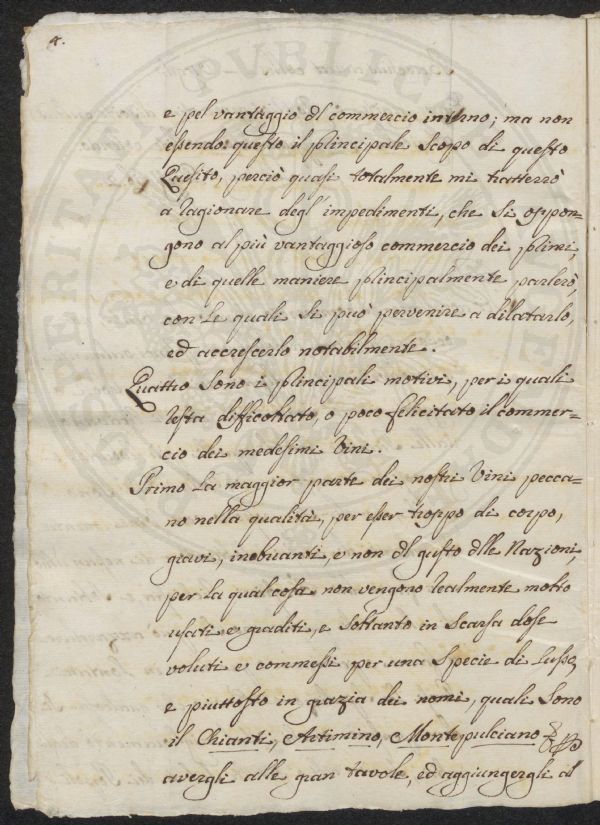 4.
e pel vantaggio dl commercio interno; ma non
essendo questo il principale scopo di questo
Quesito, perciò quasi totalmente mi tratterrò
a ragionare degl'impedimenti, che si oppon-
gono al più vantaggioso commercio dei primi,
e di quelle maniere principalmente parlerò,
con le quali si può pervenire a dilatarlo,
ed accrescerlo notabilmente.
Quattro sono i principali motivi, per i quali
resta difficoltato, o poco felicitato il commer-
cio dei medesimi Vini.
Primo La maggior parte dei nostri Vini pecca-
no nella qualità, per esser troppo di corpo,
gravi, inebrianti, e non dl gusto dlle Nazioni,
per la qual cosa non vengono realmente molto
usati e graditi, e soltanto in scarsa dose
voluti e commessi per una specie di Lusso,
e piuttosto in grazia dei nomi, quali sono
il Chianti, Artimino, Monte pulciano
avergli alle gran tavole, ed aggiungergli al